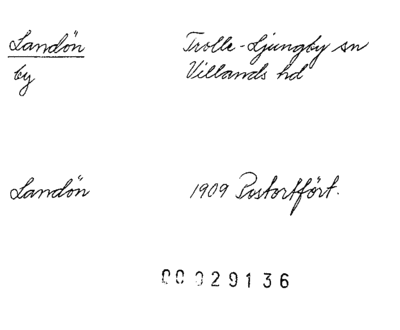 Landön
Trolle-Ljungby sn
by
Villands hd
Landön
1909 Postortfört.
00029136